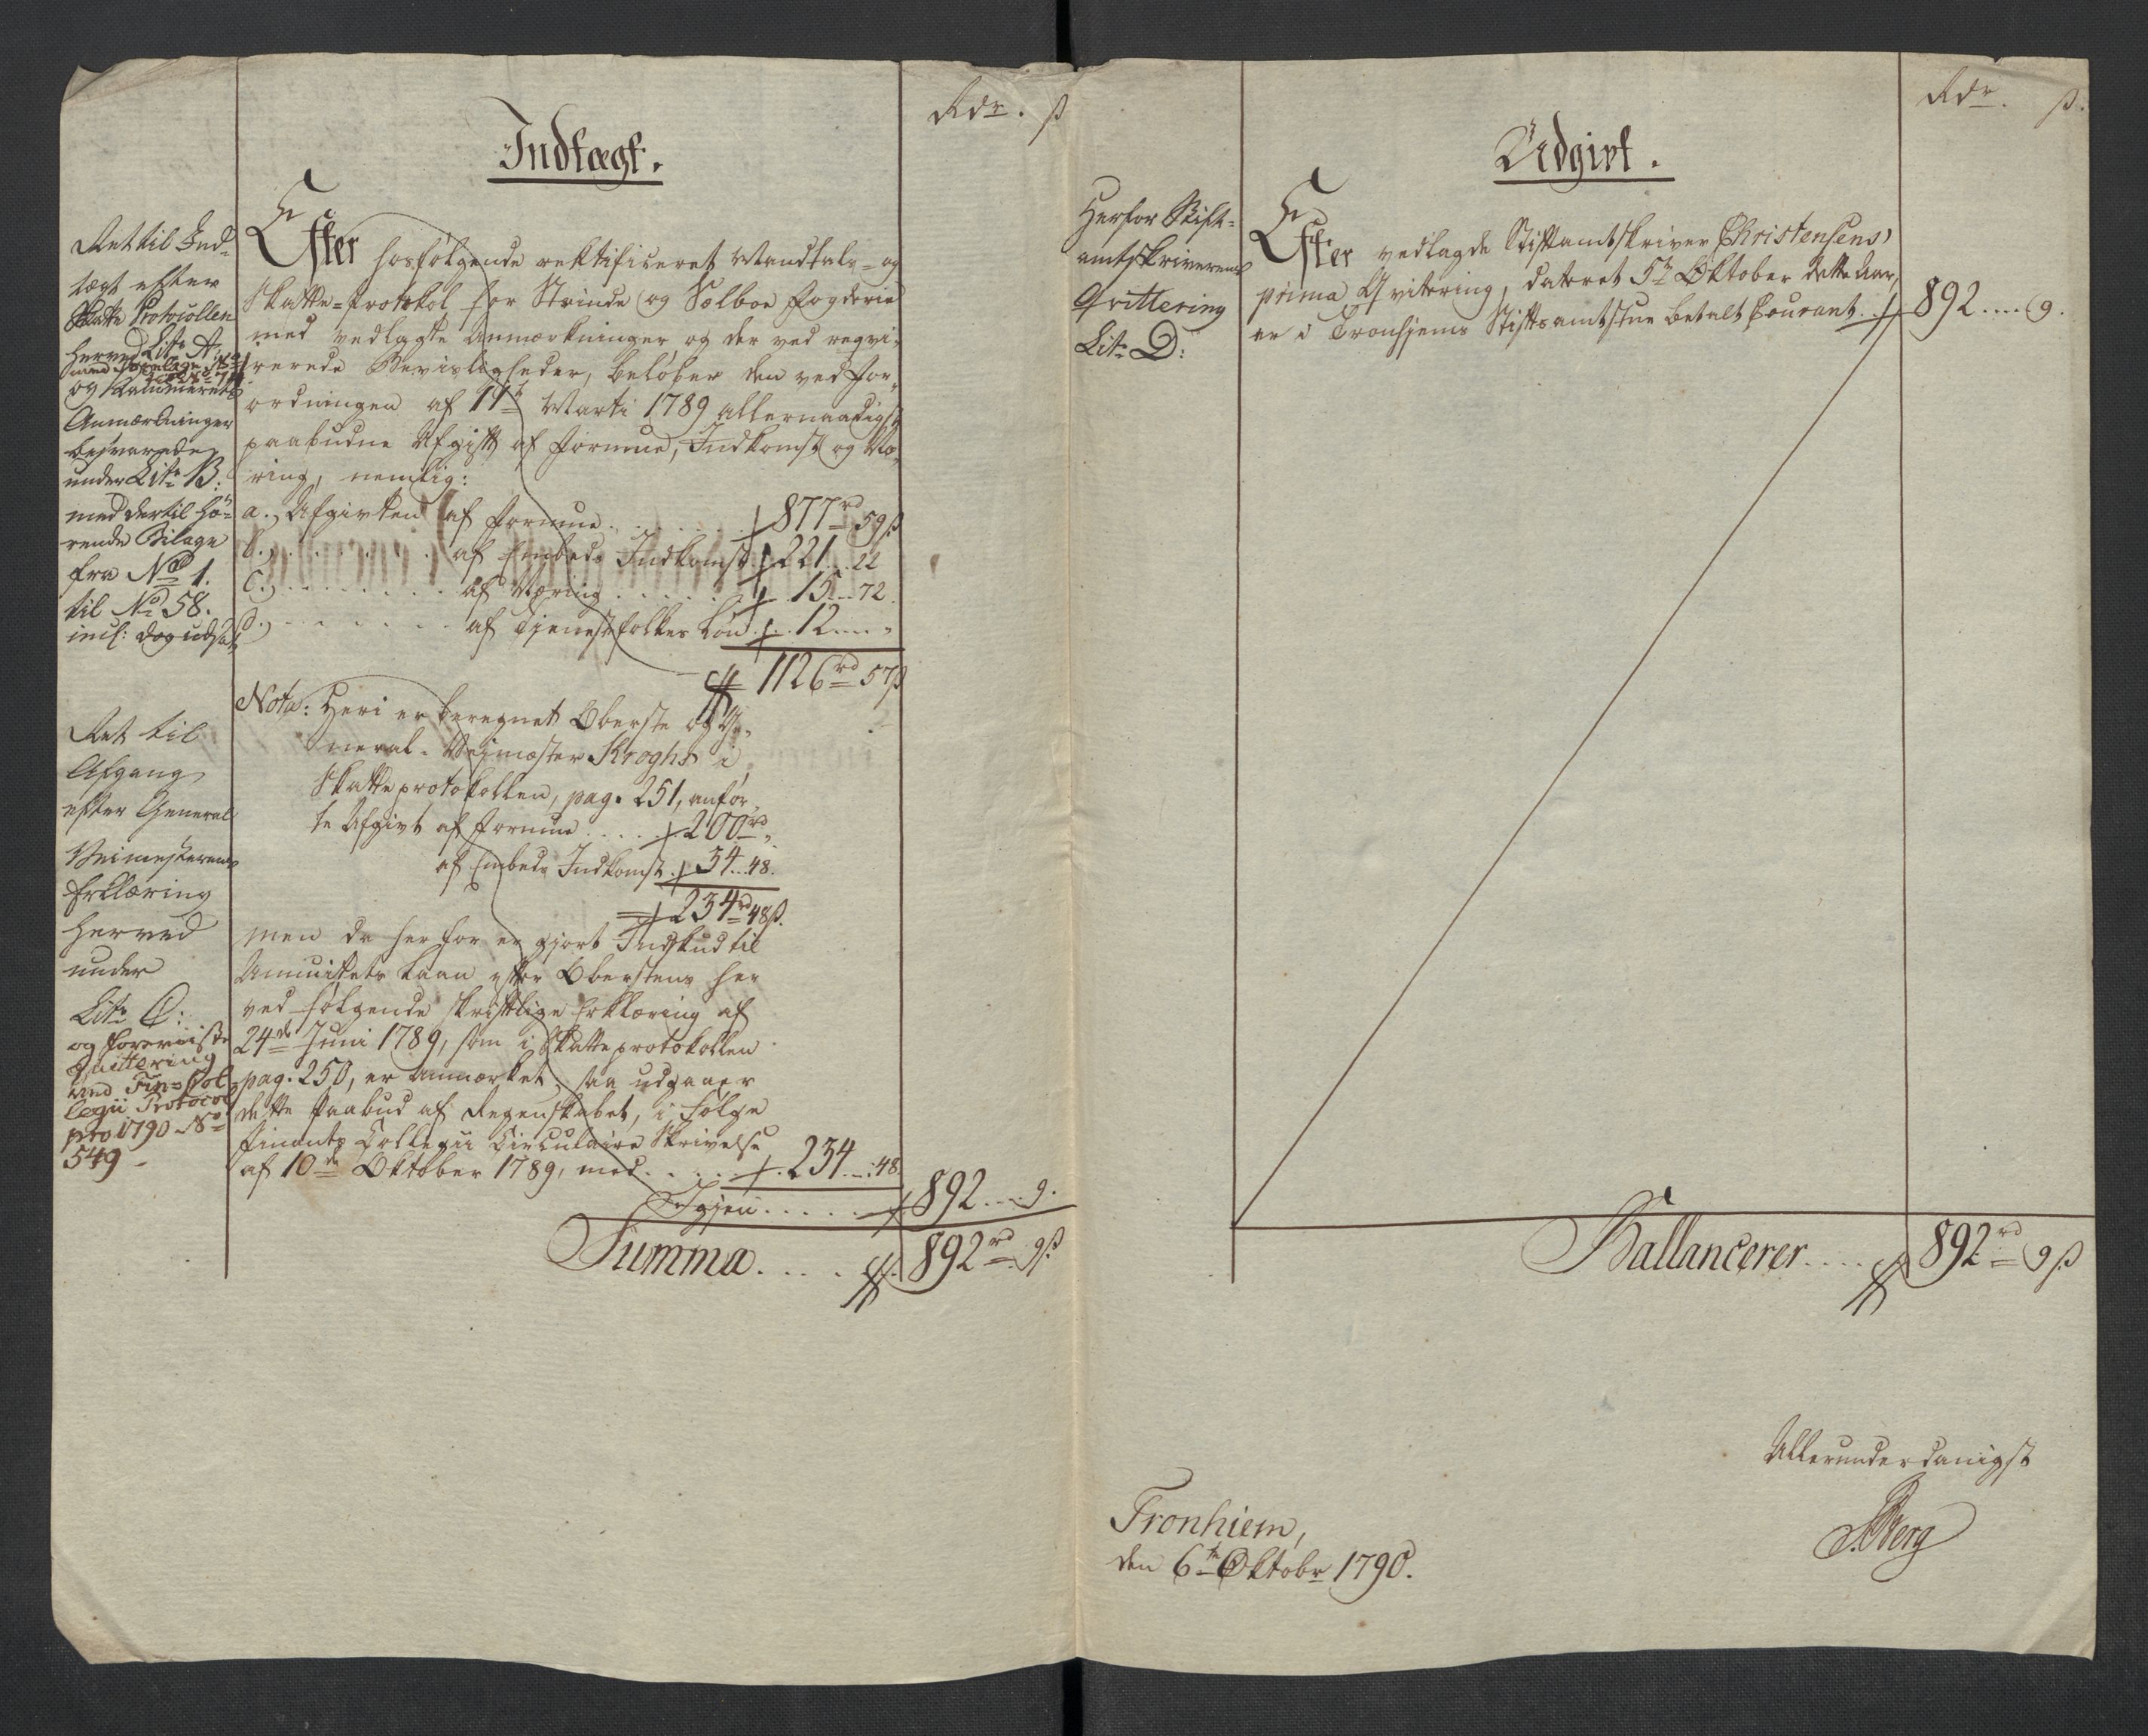 Rdr. ß
Indtægt.
Ret til Ind-
tægt efter
Skatte Protocollen
herved Litr A:
og Kammerets
Anmærkninger
besvarede
under Litr B:
med dertil hø-
rende Bilage
fra No 1.
til No 58.
incl: dog udsat
Efter hosfølgende rektificeret Mandtals- og
Skatte-Protokol for Strinde og Sælboe Fogderie
med vedlagte Anmærkninger og der ved reqvi-
rerede Bevisligheder, beløber den ved For-
ordningen af 11te Marti 1789 allernaadigst
paabudne Afgift af Formue, Indkomst og Næ-
ring, nemlig:
a., Afgivten af Formue . . . . . 877rd 59ß
b., . . . . . . af Embeds Indkomst . 221 . . 22
C., . . . . . . af Næring . . . . . 15 . . 72.
d., . . . . . . af Tjenestefolkes Løn . . 12 . . . "
1126rd 57ß
Ret til
Afgang
efter General
Veimesterens
Erklæring
herved
under
Litr C:
og foreviiste
Quittering
ved Fin: Col-
legii Protocol
pro 1790 No
549 -
Nota: Heri er beregnet Oberste og Ge-
neral-Vejmester Kroghs i
Skatteprotokollen, pag. 251, anfør-
te Afgivt af Formue . . . . 200rd "
af Embeds Indkomst . 34 . . 48.
234rd 48ß.
men da herfor er gjort Indskud til
Annuitets Laan efter Oberstens her
ved følgende skriftlige Erklæring af
24de Juni 1789, som i Skatteprotokollen
pag. 250, er anmærket, saa udgaaer
dette Paabud af Regenskabet, i Følge
Finants Collegii Circulaire Skrivelse
af 10de Oktober 1789, med . . . . 234 . . 48.
Igjen . . . . . 892 . . . 9.
Summa . . . . 892rd 9ß
Rdr. ß.
Udgivt.
Herfor Stift-
amtskriverens
Qvittering
Litr D:
Efter vedlagde Stiftamtskriver Christensens
prima Qvitering, dateret 5te Oktober dette Aar,
er i Tronhjems Stiftsamtstue betalt Courant . . 892 . . . . 9.
Ballancerer . . . . 892rd 9ß
Allerunderdanigst
Berg
Tronhiem,
den 6te Oktobr 1790.